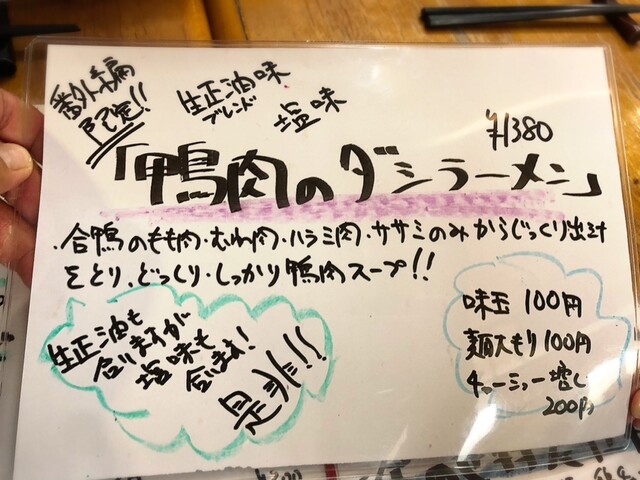 番外編
限定!!
生正油味
ブレンド
塩味
¥1380
「鴨肉のダシラーメン」
・合鴨のもも肉・むね肉・ハラミ肉・ササミのみからじっくり出汁
をとり、どっくり・しっかり鴨肉スープ!!
生正油も
合いますが
塩味も
合います!
是非!!!
味玉 100円
麺大もり 100円
チャーシュー増し
200円